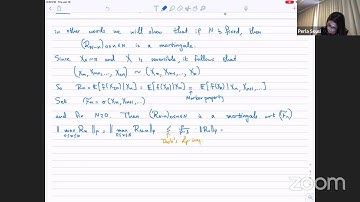 in other words we will show that if N is fixed, then
(R_{N-n})_{0≤n≤N} is a martingale.
Since X_0 ~ π and X is reversible, it follows that
(X_n, X_{n+1}, ..., X_{2n}) ~ (X_n, X_{n-1}, ..., X_0)
So R_n = E[f(X_{2n}) | X_n] = E[f(X_0) | X_n] = E[f(X_0) | X_n, X_{n+1}, ...]
Markov property
Set F_n = σ(X_n, X_{n+1}, ...)
and fix N≥0. Then (R_{N-n})_{0≤n≤N} is a martingale wrt (F_n)
|| max_{0≤n≤N} R_n ||_p = || max_{0≤n≤N} R_{N-n} ||_p ≤ p/(p-1) ||R_0||_p =
Doob's L_p-ineq
Perla Sousi
ACCESS